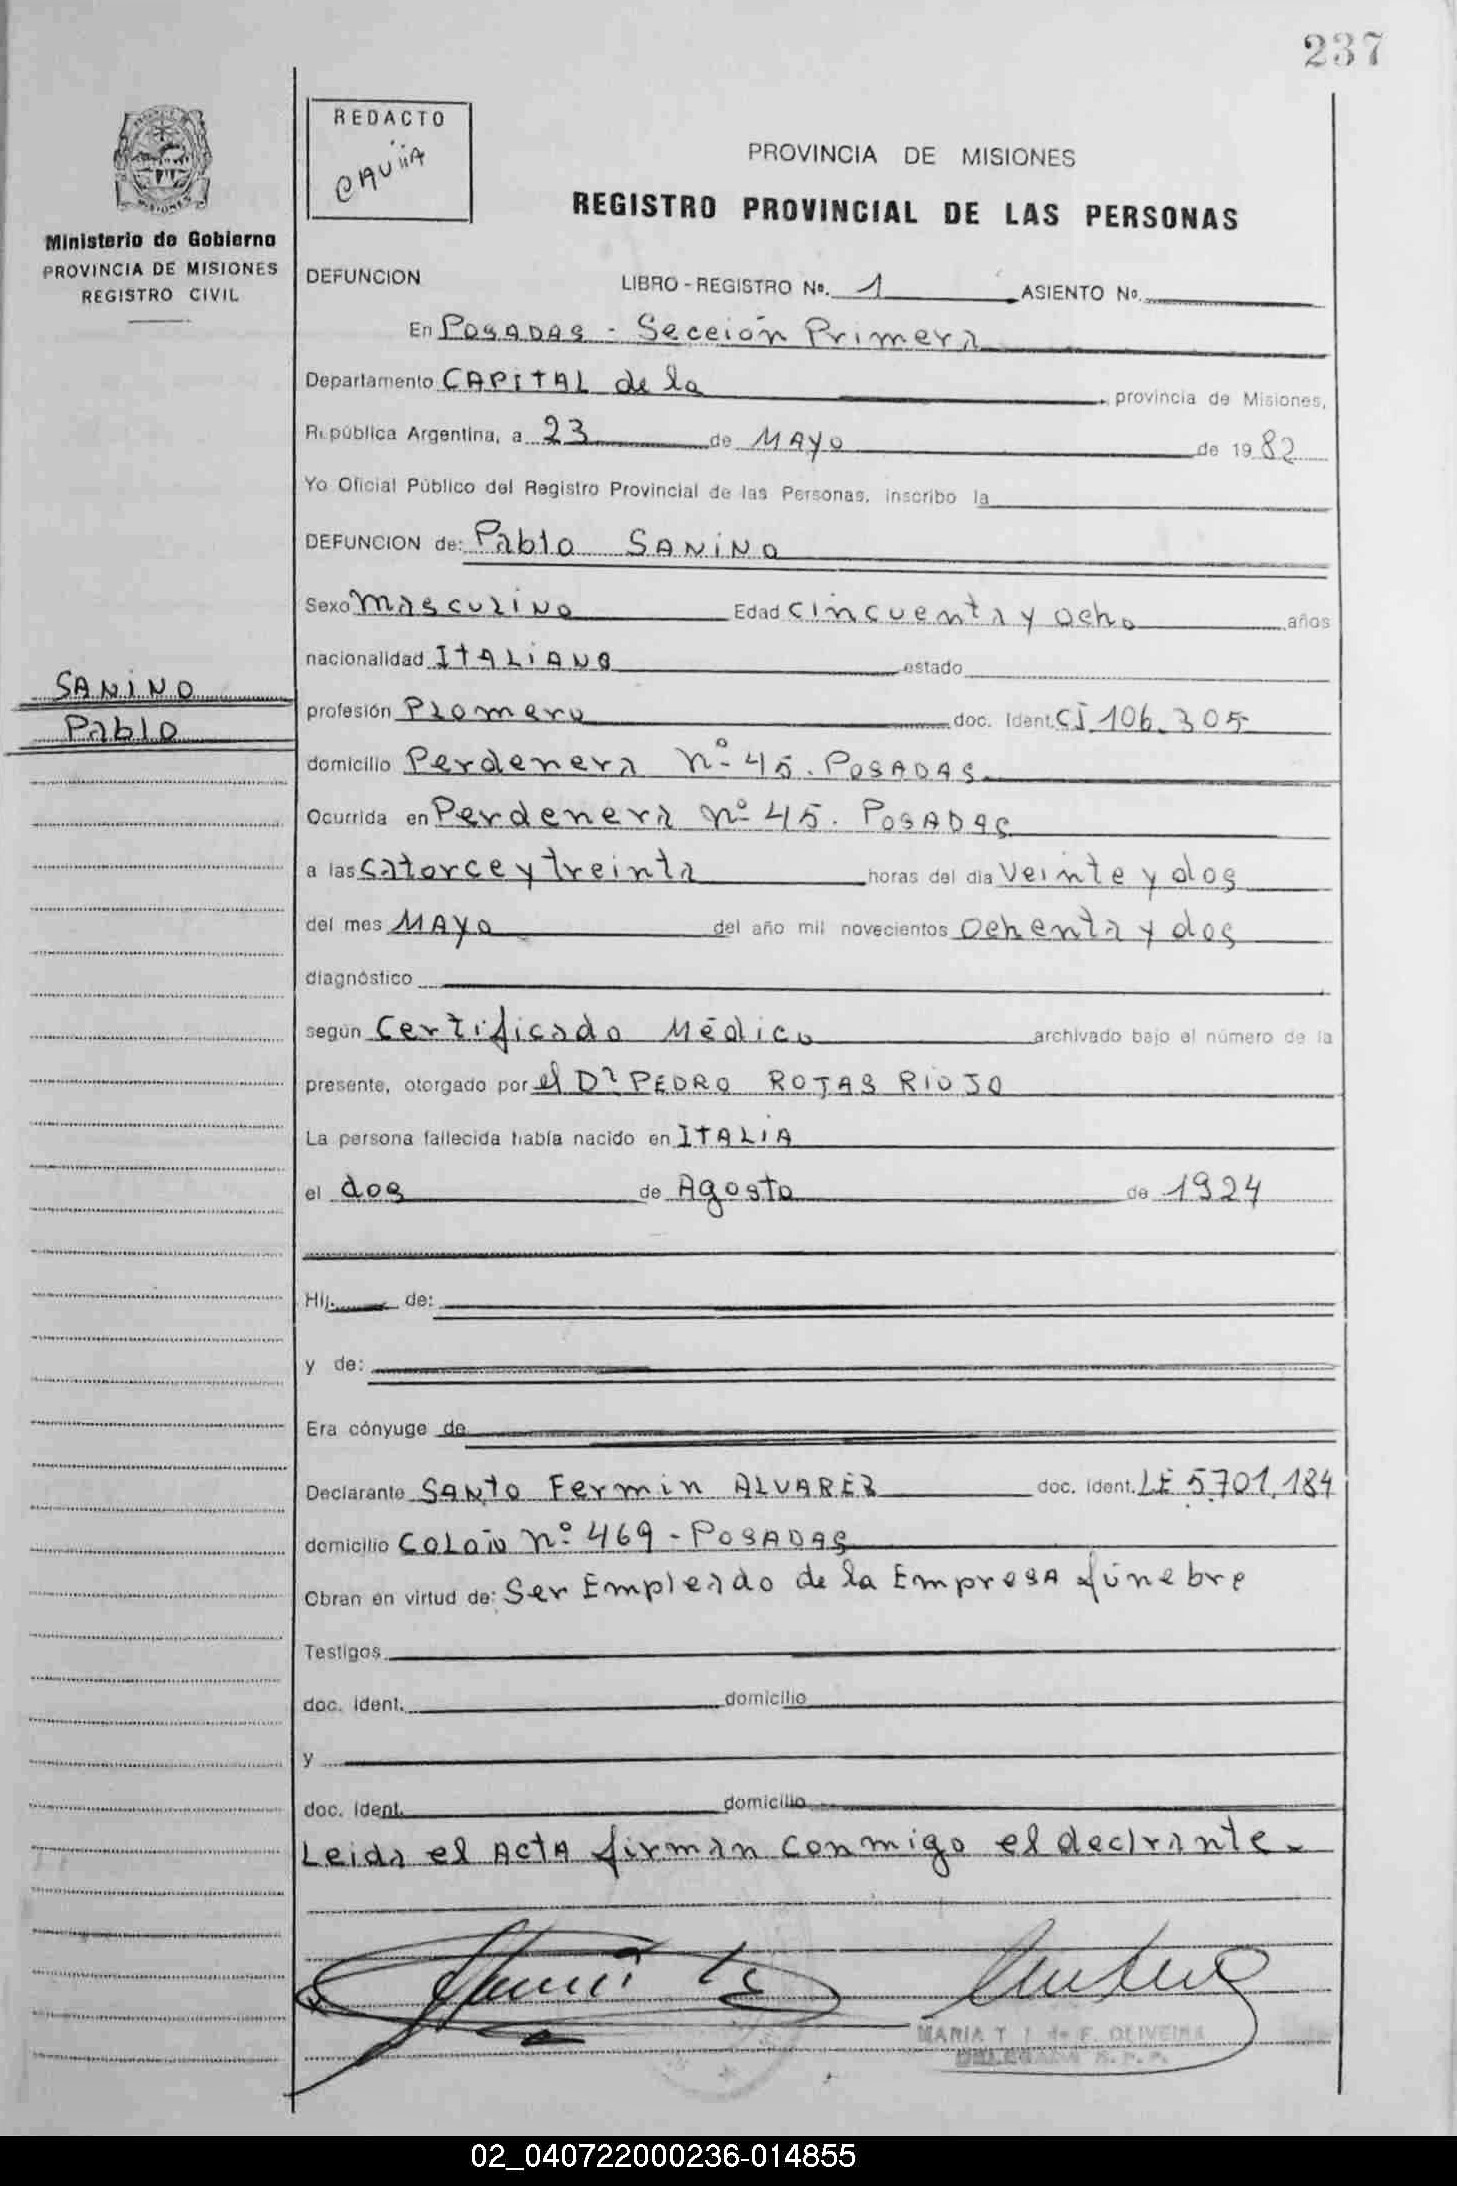 237
REDACTO
PROVINCIA DE MISIONES
REGISTRO PROVINCIAL DE LAS PERSONAS
Ministerio de Gobierno
PROVINCIA DE MISIONES
REGISTRO CIVIL
DEFUNCION LIBRO - REGISTRO No. 1 ASIENTO No.
En POSADAS - Sección Primera
Departamento CAPITAL de la provincia de Misiones,
República Argentina, a 23 de MAYO de 1982
Yo Oficial Público del Registro Provincial de las Personas, inscribo la
DEFUNCION de: Pablo SANINO
Sexo masculino Edad cincuenta y ocho años
nacionalidad ITALIANO estado
SANINO
Pablo
profesión Plomero doc. Ident. CI 106.305
domicilio Perdenera nº 45. POSADAS
Ocurrida en Perdenera nº 45. POSADAS
a las catorce y treinta horas del día veinte y dos
del mes MAYO del año mil novecientos ochenta y dos
diagnóstico
según Certificado Médico archivado bajo el número de la
presente, otorgado por el Dr PEDRO ROJAS RIOJO
La persona fallecida había nacido en ITALIA
el dos de Agosto de 1924
Hij de:
y de:
Era cónyuge de
Declarante SANTO Fermin ALVAREZ doc. Ident. LE 5.701.184
domicilio COLÓN nº 469 - POSADAS
Obran en virtud de: Ser Empleado de la Empresa fúnebre
Testigos
doc. ident. domicilio
y
doc. ident. domicilio
Leida el ACTA firman conmigo el declrante.
MARIA T. de F. OLIVEIRA
DELEGADA R. P. P.
02_040722000236-014855